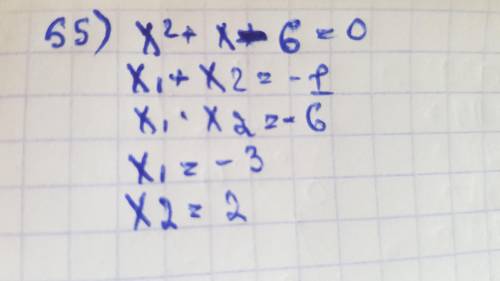 55) x² + x - 6 = 0
x₁ + x₂ = -1
x₁ · x₂ = -6
x₁ = -3
x₂ = 2